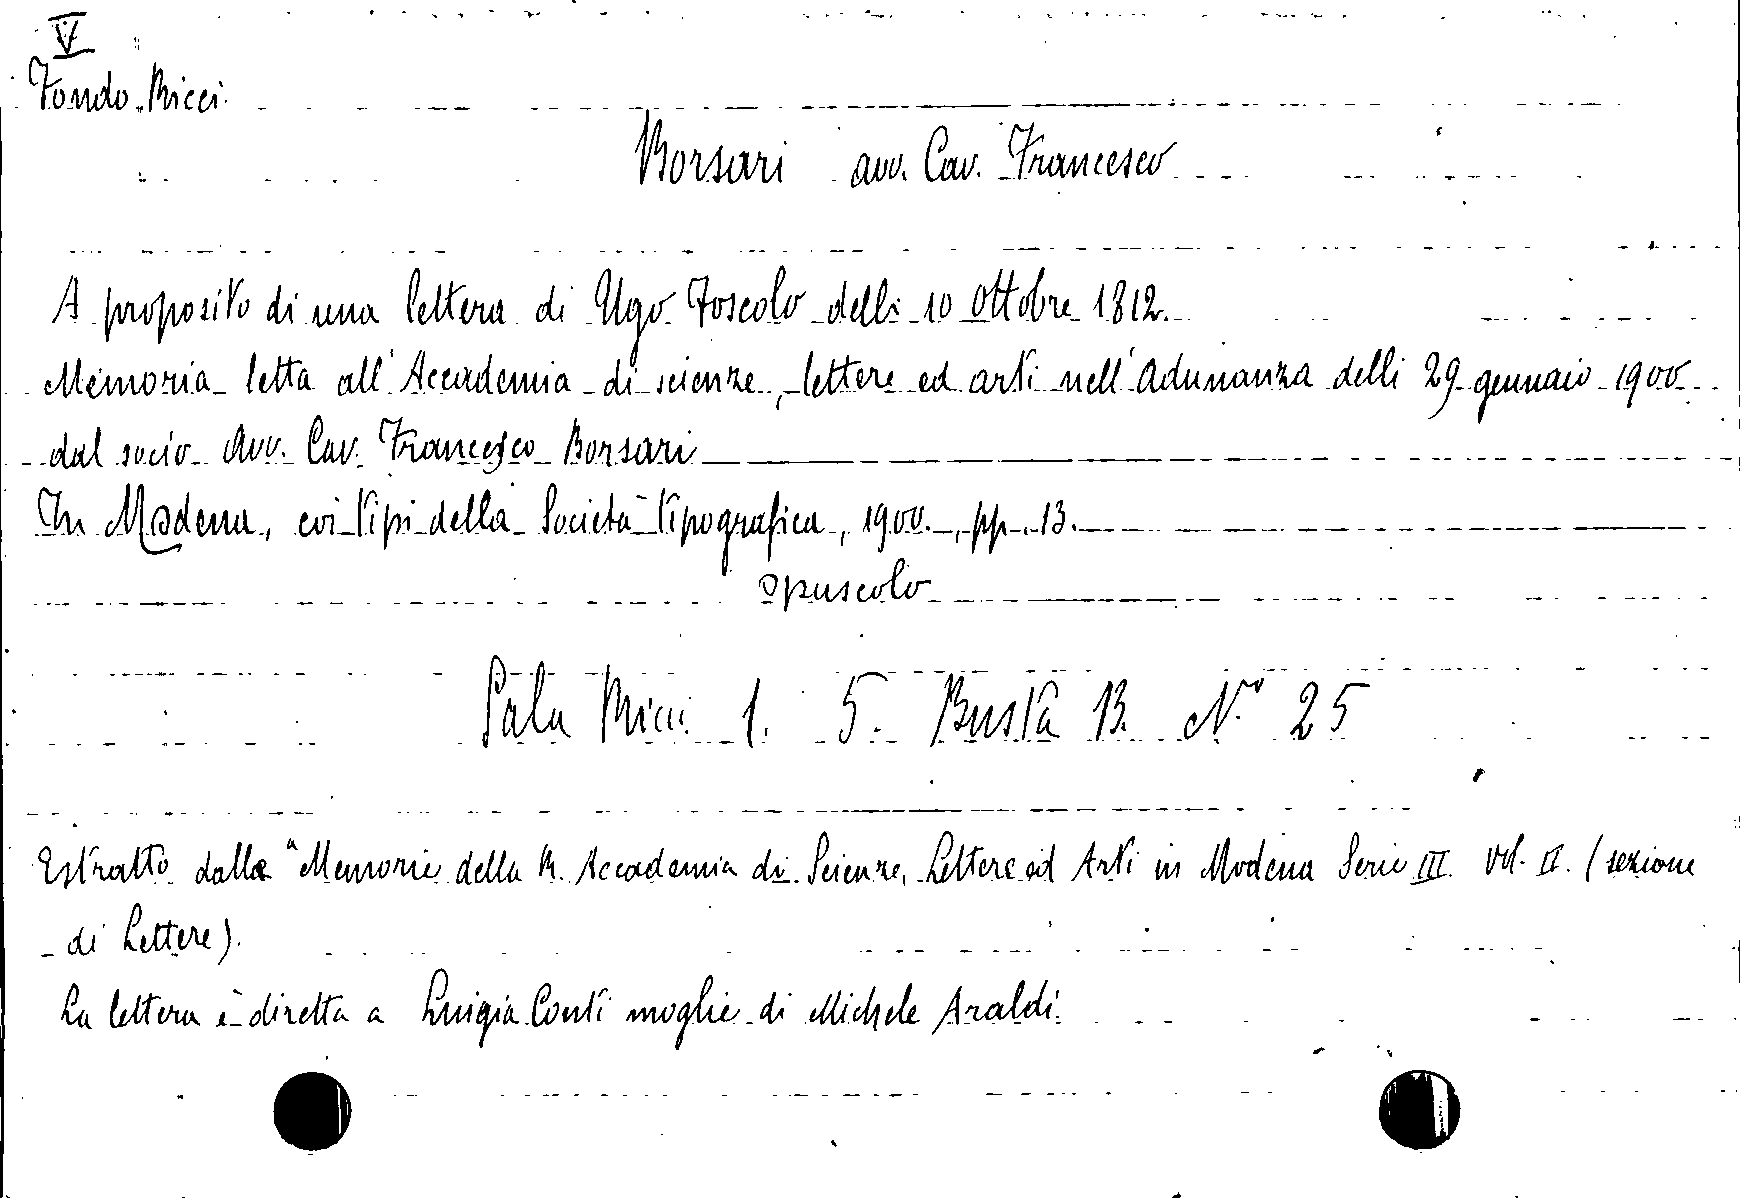 V
Fondo Ricci
Borsari avv. Cav. Francesco
A proposito di una lettera di Ugo Foscolo delli 10 Ottobre 1812.
Memoria letta all'Accademia di scienze, lettere ed arti nell'Adunanza delli 29 gennaio 1900
dal socio Avv. Cav. Francesco Borsari
In Modena, coi tipi della Società tipografica, 1900., pp. 13.
opuscolo
Sala Ricci 1. 5. Busta B. N.o 25
Estratto dalle "Memorie della R. Accademia di Scienze, Lettere ed Arti in Modena Serie III. Vol. II. (sezione
di Lettere).
La lettera è diretta a Luigia Conti moglie di Michele Araldi.